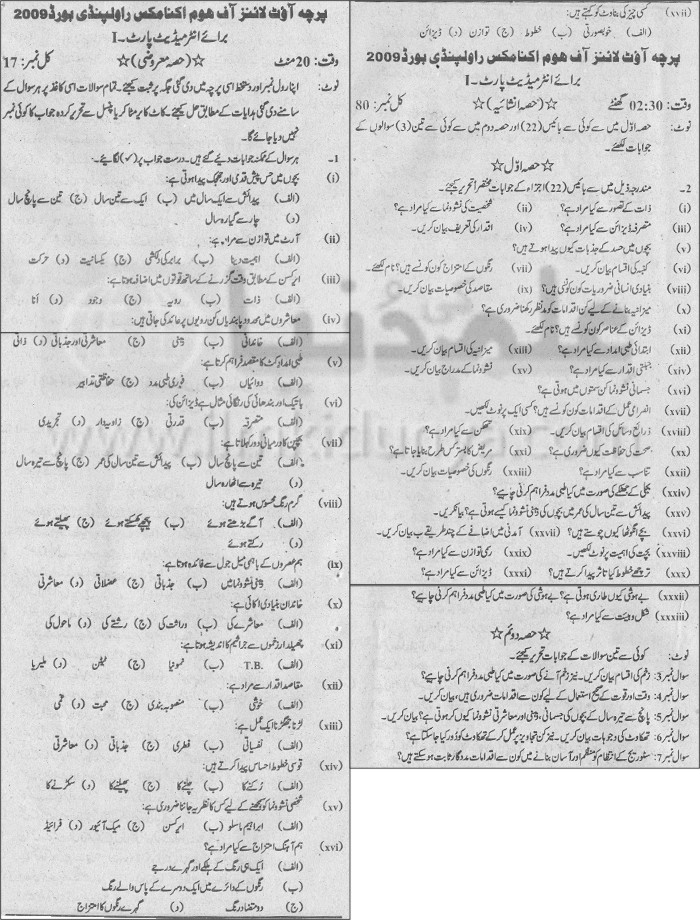 پرچہ آؤٹ لائنز آف ہوم اکنامکس راولپنڈی بورڈ 2009
برائے انٹرمیڈیٹ پارٹ۔ I
وقت: 20 منٹ ☆(حصہ معروضی)☆ کل نمبر: 17
نوٹ: اپنا رول نمبر اور دستخط اسی پرچہ میں دی گئی جگہ پر ثبت کیجئے۔ تمام سوالات اسی کاغذ پر ہر سوال کے
سامنے دی گئی ہدایات کے مطابق حل کیجئے۔ کاٹ کا ربر مٹا کر یا پنسل سے تحریر کردہ جواب کا کوئی نمبر
نہیں دیا جائے گا۔
1۔ ہر سوال کے ممکنہ جوابات دیے گئے ہیں۔ درست جواب پر (✓) لگائیے۔
(i) بچوں میں حس پیش قدمی اور جھجک پیدا ہوتی ہے:
(الف) پیدائش سے ایک سال میں (ب) ایک سے تین سال (ج) تین سے پانچ سال
(د) چار سے گیارہ سال
(ii) آرٹ میں توازن سے مراد ہے:
(الف) اہمیت دینا (ب) برابر کی دلکشی (ج) یکسانیت (د) حرکت
(iii) ایرکسن کے مطابق وقت گزرنے کے ساتھ قوتوں میں اضافہ ہوتا ہے:
(الف) ذات (ب) رویہ (ج) وجود (د) انا
(iv) معاشروں میں حدود و پابندیاں کن رویوں پر عائد کی جاتی ہیں:
(الف) خاندانی (ب) ذہنی (ج) معاشرتی اور جذباتی (د) ذاتی
(v) طبی امداد کٹ کا مقصد فراہم کرنا ہے:
(الف) دوائیاں (ب) فوری طبی مدد (ج) حفاظتی تدابیر
(vi) باتیک اور بندھائی کی رنگائی مثال ہے ڈیزائن کی:
(الف) متفرقہ (ب) قدرتی (ج) زاویہ دار (د) تجریدی
(vii) بچپن کا درمیانی دور کہلاتا ہے:
(الف) تین سے پانچ سال (ب) پیدائش سے تین سال کی عمر (ج) پانچ سے تیرہ سال
(د) تیرہ سے اٹھارہ سال
(viii) گرم رنگ محسوس ہوتے ہیں:
(الف) آگے بڑھتے ہوئے (ب) پیچھے ہٹتے ہوئے (ج) پھیلتے ہوئے
(د) رکتے ہوئے
(ix) ہم عصروں کے باہمی میل جول سے فائدہ ہوتا ہے:
(الف) ذہنی نشوونما میں (ب) جذباتی (ج) عضلاتی (د) معاشرتی
(x) خاندان بنیادی اکائی ہے:
(الف) معاشرے کی (ب) وراثت کی (ج) رشتے کی (د) ماحول کی
(xi) چھیلدار زخموں سے جراثیم کا اندیشہ ہوتا ہے:
(الف) T.B. (ب) نمونیا (ج) ٹیٹنس (د) ملیریا
(xii) مقاصد اقدار سے مراد ہے:
(الف) خوشی (ب) منصوبہ بندی (ج) محبت (د) غمی
(xiii) لڑنا جھگڑنا ایک عمل ہے:
(الف) نفسیاتی (ب) فطری (ج) جذباتی (د) معاشرتی
(xiv) قوسی خطوط احساس پیدا کرتے ہیں:
(الف) رُکنے کا (ب) چلنے کا (ج) پھیلنے کا (د) سکڑنے کا
(xv) شخصی نشوونما کو سمجھنے کے لیے کس کا نظریہ جاننا ضروری ہے:
(الف) ابراہیم ماسلو (ب) ایرکسن (ج) میک آئیور (د) فرائیڈ
(xvi) ہم آہنگ امتزاج سے کیا مراد ہے؟
(الف) ایک ہی رنگ کے ہلکے اور گہرے درجے
(ب) رنگوں کے دائرے میں ایک دوسرے کے پاس والے رنگ
(ج) دو متضاد رنگ (د) گہرے رنگوں کا امتزاج
(xvii) کسی چیز کی بناوٹ کو کہتے ہیں:
(الف) خوبصورتی (ب) خطوط (ج) توازن (د) ڈیزائن
پرچہ آؤٹ لائنز آف ہوم اکنامکس راولپنڈی بورڈ 2009
برائے انٹرمیڈیٹ پارٹ۔ I
وقت: 02:30 گھنٹے ☆(حصہ انشائیہ)☆ کل نمبر: 80
نوٹ: حصہ اوّل میں سے کوئی سے بائیس (22) اور حصہ دوم میں سے کوئی سے تین (3) سوالوں کے
جوابات لکھئے۔
☆حصہ اوّل☆
2۔ مندرجہ ذیل میں سے بائیس (22) اجزاء کے جوابات مختصراً تحریر کیجئے۔
(i) ذات کے تصور سے کیا مراد ہے؟ (ii) شخصیت کی نشوونما سے کیا مراد ہے؟
(iii) متفرقہ ڈیزائن سے کیا مراد ہے؟ (iv) اقدار کی تعریف بیان کریں۔
(v) بچوں میں حسد کے جذبات کیوں پیدا ہوتے ہیں؟
(vi) کنبہ کی اقسام بیان کریں۔ (vii) رنگوں کے امتزاج کون کونسے ہیں؟ نام لکھئے۔
(viii) بنیادی انسانی ضروریات کون کونسی ہیں؟ (ix) مقاصد کی خصوصیات بیان کریں۔
(x) میزانیہ بنانے کے لیے کن اقدامات کو مدنظر رکھنا ضروری ہے؟
(xi) ڈیزائن کے عناصر کون کونسے ہیں؟ نام لکھئے۔
(xii) ابتدائی طبی امداد سے کیا مراد ہے؟ (xiii) میزانیہ کی اقسام بیان کریں۔
(xiv) جبلتی اقدار سے کیا مراد ہے؟ (xv) نشوونما کے مدارج بیان کریں۔
(xvi) جسمانی نشوونما کن سمتوں میں ہوتی ہے؟
(xvii) انصرامی عمل کے اقدامات کون کونسے ہیں؟ کسی ایک پر نوٹ لکھیں۔
(xviii) ذرائع و وسائل کی اقسام بیان کریں۔ (xix) تھکن سے کیا مراد ہے؟
(xx) صحت کی حفاظت کیوں ضروری ہے؟ (xxi) مریض کا بستر کس طرح بنایا جاتا ہے؟
(xxii) تناسب سے کیا مراد ہے؟ (xxiii) رنگوں کی خصوصیات بیان کریں۔
(xxiv) بجلی کے جھٹکے کی صورت میں کیا طبی مدد فراہم کرنی چاہیے؟
(xxv) پیدائش سے تین سال کی عمر میں بچوں کی ذہنی نشوونما کیسے ہوتی ہے؟ بیان کریں۔
(xxvi) بچے انگوٹھا کیوں چوستے ہیں؟ (xxvii) آمدنی میں اضافے کے چند طریقے بیان کریں۔
(xxviii) بچت کی اہمیت پر نوٹ لکھیں۔ (xxix) رسمی توازن سے کیا مراد ہے؟
(xxx) ترچھے خطوط کیا تاثر پیدا کرتے ہیں؟ (xxxi) ڈیزائن سے کیا مراد ہے؟
(xxxii) بے ہوشی کیوں طاری ہوتی ہے؟ بے ہوشی کی صورت میں کیا طبی مدد فراہم کرنی چاہیے؟
(xxxiii) شکل و ہیئت سے کیا مراد ہے؟
☆حصہ دوئم☆
نوٹ: کوئی سے تین سوالات کے جوابات تحریر کیجئے۔
سوال نمبر 3: زخم کی اقسام بیان کریں۔ نیز زخم آنے کی صورت میں کیا طبی مدد فراہم کرنی چاہیے؟
سوال نمبر 4: وقت اور قوت کے صحیح استعمال کے لیے کون سے اقدامات ضروری ہیں، بیان کریں۔
سوال نمبر 5: پانچ سے تیرہ سال کے بچوں کی جسمانی، ذہنی اور معاشرتی نشوونما کیوں کر ہوتی ہے؟ بیان کریں۔
سوال نمبر 6: تھکاوٹ کی وجوہات بیان کریں۔ نیز کن تجاویز پر عمل کر کے تھکاوٹ کو دُور کیا جا سکتا ہے؟
سوال نمبر 7: سٹوریج کے انتظام کو منظم اور آسان بنانے میں کون سے اقدامات مددگار ثابت ہو سکتے ہیں؟